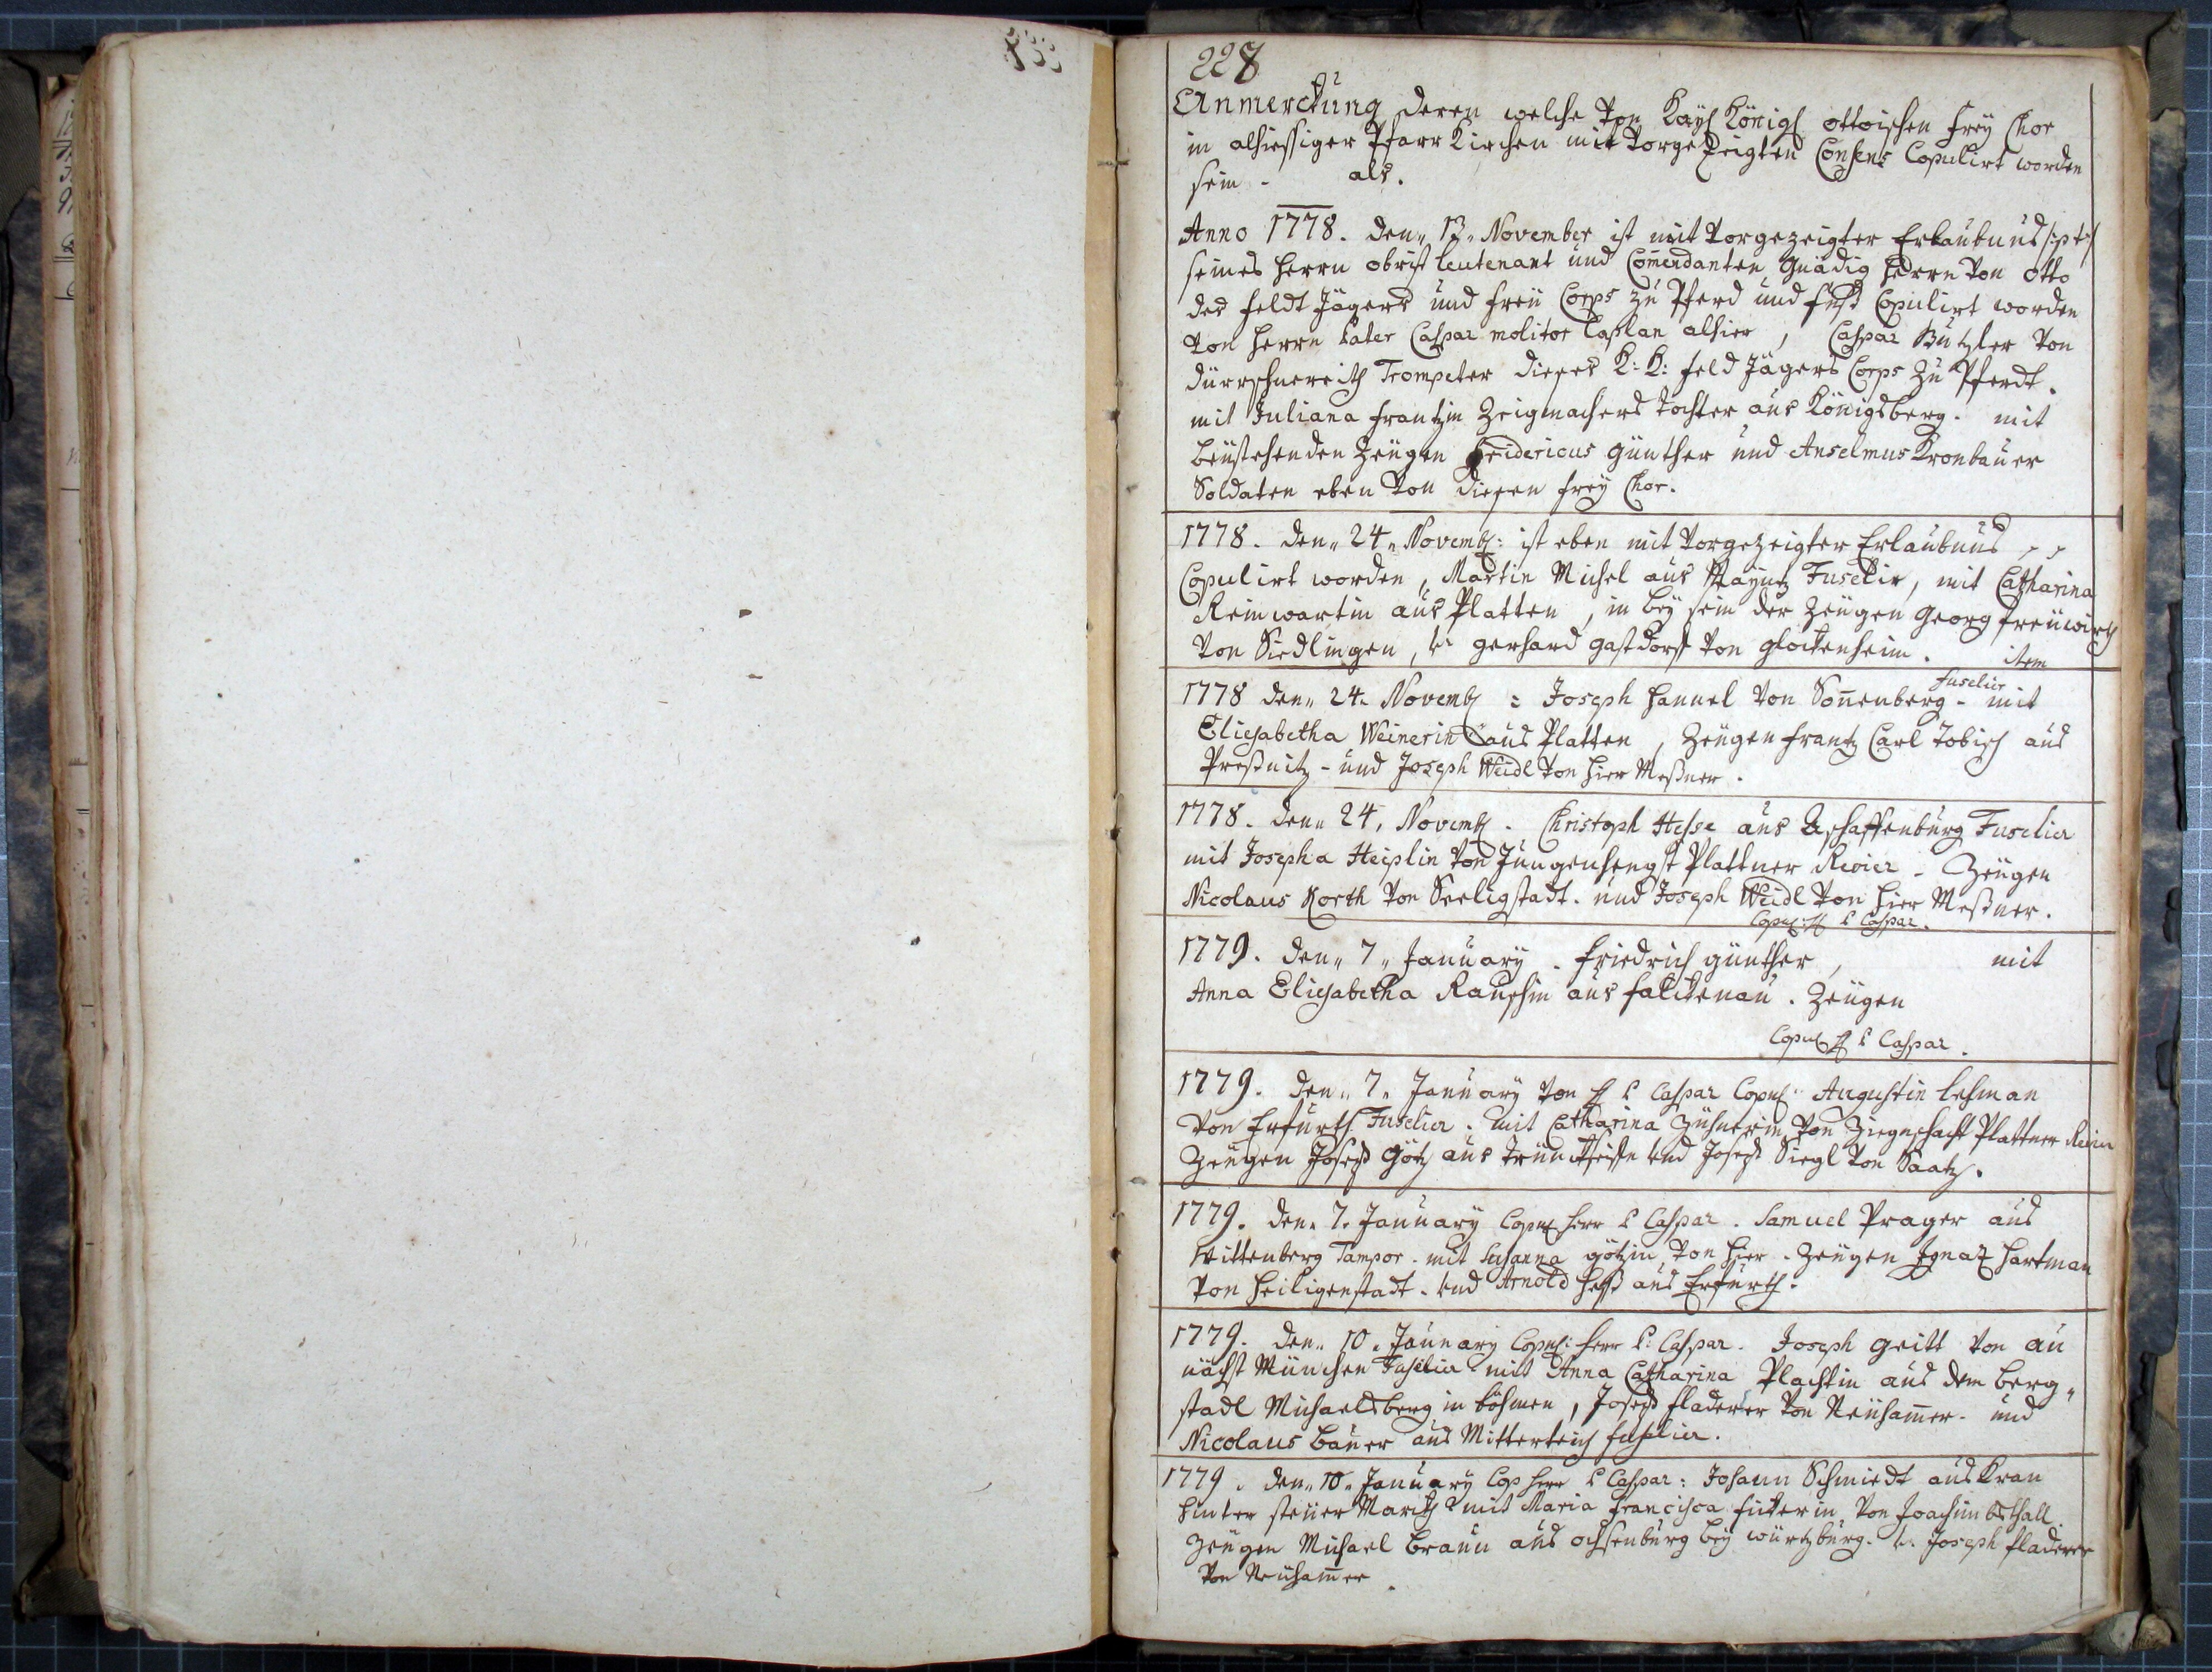 228
Anmerckung deren welche von Kayl Königl ottoischen frey Chor
in alhiessiger Pfarr Kirchen mit vorgezeigten Consens Copulirt worden
sein - als.
Anno 1778. den 13. November ist mit vorgezeigter Erlaubnus
seines Herrn obrist leutenant und Comendanten Gnädig Herrn von Otto
des feldt Jägers und freü Corps zu Pferd und fuß Copulirt worden
von Herrn Pater Caspar molitor Caplan alhier, Caspar Butzler von
Dürrschnereith Trompeter dieses K: K: feld Jägers Corps zu Pferdt.
mit Juliana frantzin Zeigmachers tochter aus Königsberg. mit
beustehenden Zeugen Fridericus günther und Anselmus Kronbauer
Soldaten eben von diesen frey Chor.
1778. den 24. Novemb: ist eben mit vorgezeigter Erlaubnus
Copulirt worden, Martin Michel aus Maynz Fuselir, mit Catharina
Reinwartin aus Platten, in bey sein der Zeugen Georg freuwirth
von Siedlingen, gerhard gastdorf von glockenheim. item
1778 den 24. Novemb: Joseph Hannel von Sonenberg - fuselier mit
Eliesabetha Weinerin aus Platten, Zeugen frantz Carl Tobisch aus
Preßnitz - und Joseph Weidl von hier Meßner.
1778. den 24. Novemb. Christoph Hesse aus Aschaffenburg Fuselier
mit Josepha Heiplin von Jungenhengst Plattner Revier - Zeugen
Nicolaus Korth von Seeligstadt. und Joseph Weidl von hier Meßner.
Copul: H P Caspar.
1779. den 7. January. friedrich günther, mit
Anna Eliesabetha Rauschin aus falckenau. Zeugen
Copul H P Caspar.
1779. den 7. January von H P Caspar Copul: Augustin lehman
von Erfurth Fuselier. mit Catharina Zuhnerin von Ziegnschacht Plattner Revier
Zeugen Joseph Götz aus und Joseph Siegl von Saatz.
1779. den 7. January Copul Herr P Caspar. Samuel Prager aus
Wittenberg Tampor. mit Susanna götzin von hier. Zeugen Ignatz Hartman
von Heiligenstadt. und Arnold Heß aus Erfurth.
1779. den 10. January Copul: Herr P: Caspar. Joseph geitt von au
nächst München Fuselier mit Anna Catharina Plachtin aus dem berg„
stadl Michaelsberg in böhmen, Joseph fladerer von Neuhamer. und
Nicolaus bauer aus Mitterteich fuselier.
1779. den 10. January Cop Herr P Caspar: Johann Schmiedt aus Kran
hinter steuer Marck mit Maria Francisca von Joachimbsthall.
Zeugen Michael braun aus ochsenburg bey würtzburg. Joseph fladerer
von Neuhamer.